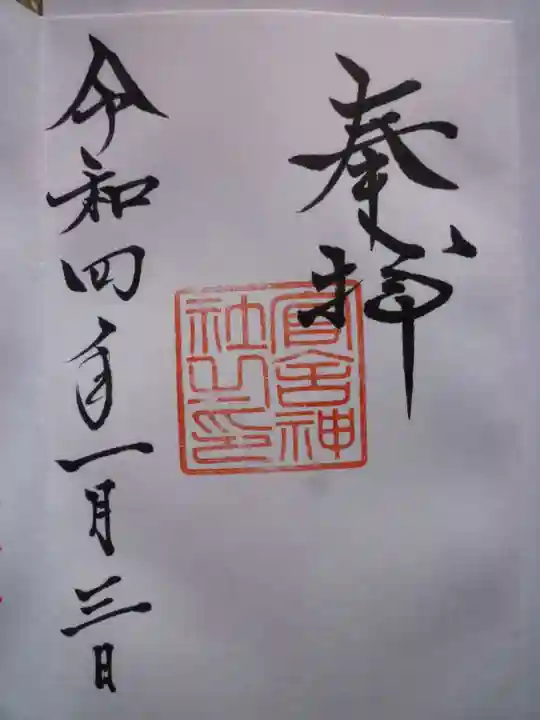 奉拝
官舎神
社之印
令和四年一月三日